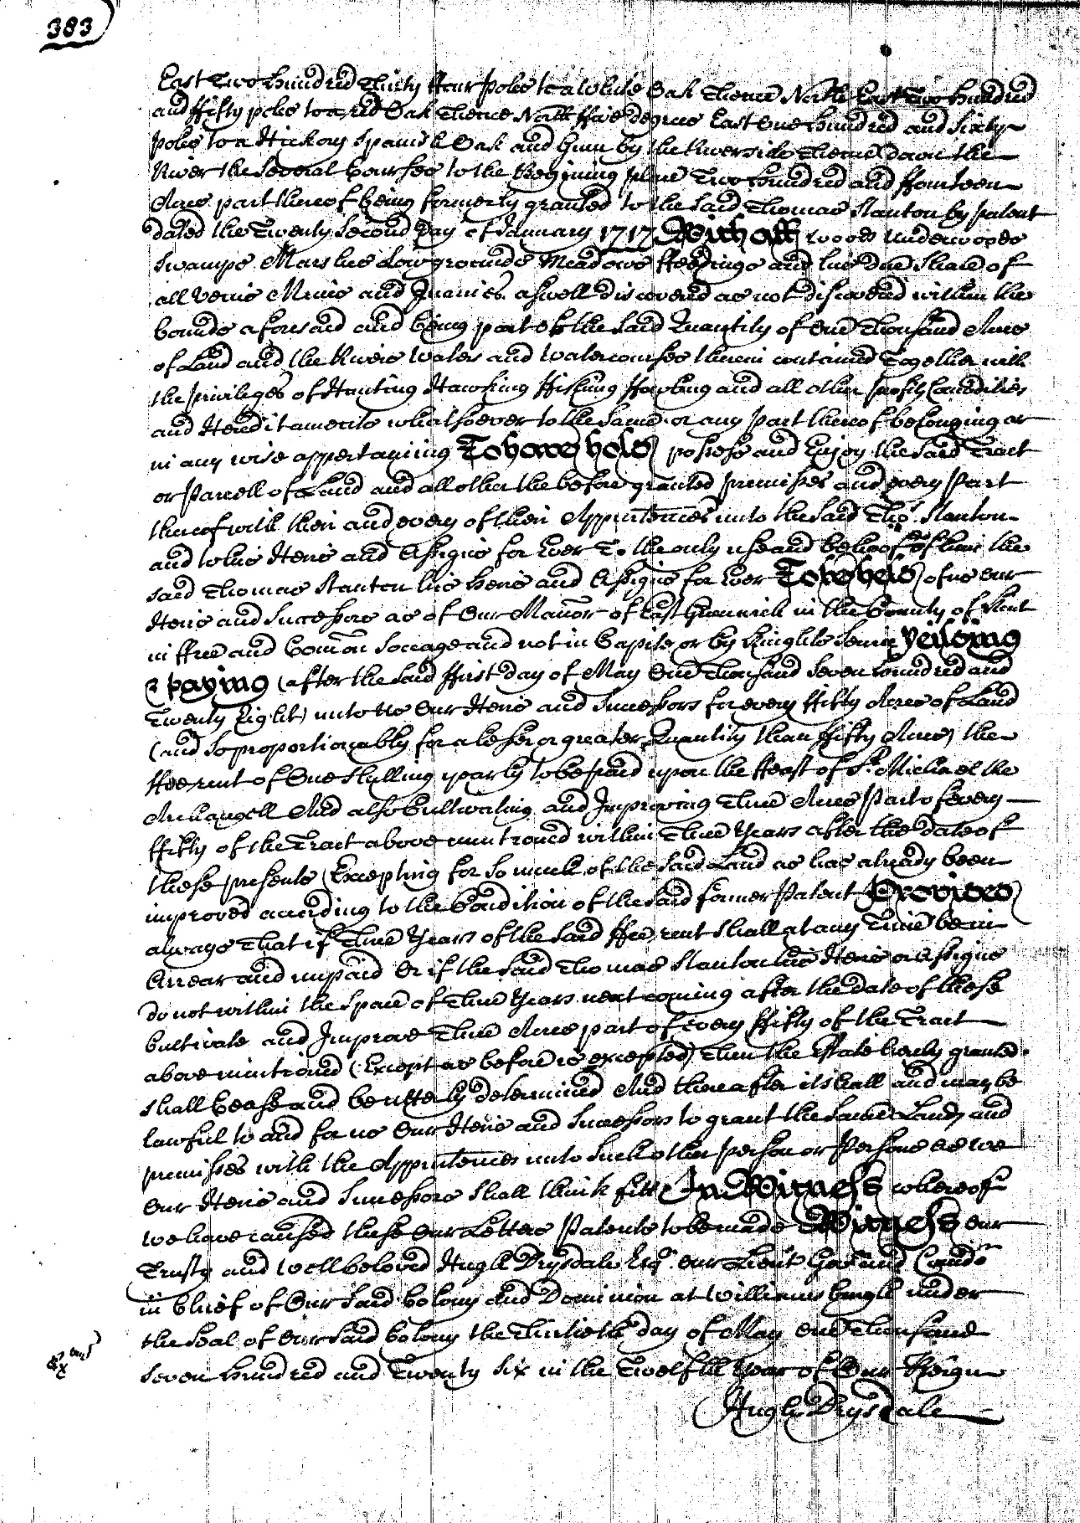 383
East Two hundred Thirty ffour poles to a White Oak Thence North East Two hundred
and ffifty poles to a red Oak Thence North ffive degrees East One hundred and Sixty
poles to a Hickory Spanish Oak and Gum by the River side Thence down the
River the Several Courses to the Begining place Two hundred and ffourteen
Acres part thereof being formerly granted to the said Thomas Stanton by patent
dated the Twenty Second Day of January 1717 With all woods Underwoods
Swamps Marshes Lowgrounds Meadows ffeedings and his due Share of
all Veins Mines and Quarries aswell discovered as not discovered within the
bounds aforesaid and being part of the said Quantity of One Thousand Acres
of Land and the Rivers Waters and Watercourses therein contained Together with
the priviledges of Hunting Hawking ffishing ffowling and all other profits Comodities
and Hereditaments whatsoever to the same or any part thereof belonging or
in any wise appertaining To have hold possess and Enjoy the said Tract
or Parcell of Land and all other the before granted premisses and every Part
thereof with their and every of their Appurtences unto the said Tho.s Stanton
and to his Heirs and Assigns for Ever To the only use and behoof of him the
said Thomas Stanton his heirs and Assigns for Ever To be held of us Our
Heirs and Successors as of Our Mannor of East Greenwich in the County of Kent
in ffree and Comon Soccage and not in Capite or by Knights Service Yeilding
& paying (after the said ffirst day of May One Thousand Seven hundred and
Twenty Eight) unto us Our Heirs and Successors for every ffifty Acres of Land
(and so proportionably for a lesser or greater Quantity than ffifty Acres) the
ffee rent of One Shilling yearly to be paid upon the ffeast of S.t Michael the
Archangell And also Cultivating and Improving Three Acres Part of every
ffifty of the Tract above mentioned within Three Years after the date of
these presents (Excepting for so much of the said Land as has already been
improved according to the Condition of the said former Patent Provided
always That if Three Years of the said ffee rent shall at any Time be in
Arrear and unpaid Or if the said Thomas Stanton his Heirs or Assigns
do not within the space of Three Years next coming after the date of these
Cultivate and Improve Three Acres part of Every ffifty of the Tract
above mentioned (Except as before is excepted) Then the Estate hereby granted
shall Cease and be utterly determined And thereafter it shall and may be
lawful to and for us Our Heirs and Successors to grant the same Lands and
premisses with the Appurtences unto such other person or Persons as we
Our Heirs and Successors shall think fitt In Witness whereof
we have caused these Our Letters Patents to be made Witness our
Trusty and Wellbeloved Hugh Drysdale Esq.r our Lieut Gov.r and Comdr
in Chief of Our said Colony and Dominion at Williams burgh under
the Seal of Our said Colony the Thirtieth day of May One Thousand
Seven hundred and Twenty Six in the Twelfth Year of Our Reign
Hugh Drysdale